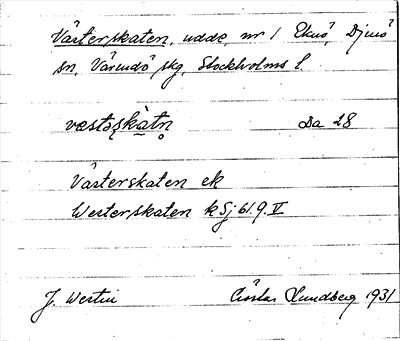 Västerskaten, udde, nr 1 Eknö, Djurö
sn, Värmdö skg, Stockholms l.
væstəʂkàtn̥ Da 28
Västerskaten ek
Westerskaten k Sj 61.9.II
J. Westin Gösta Lundberg 1931